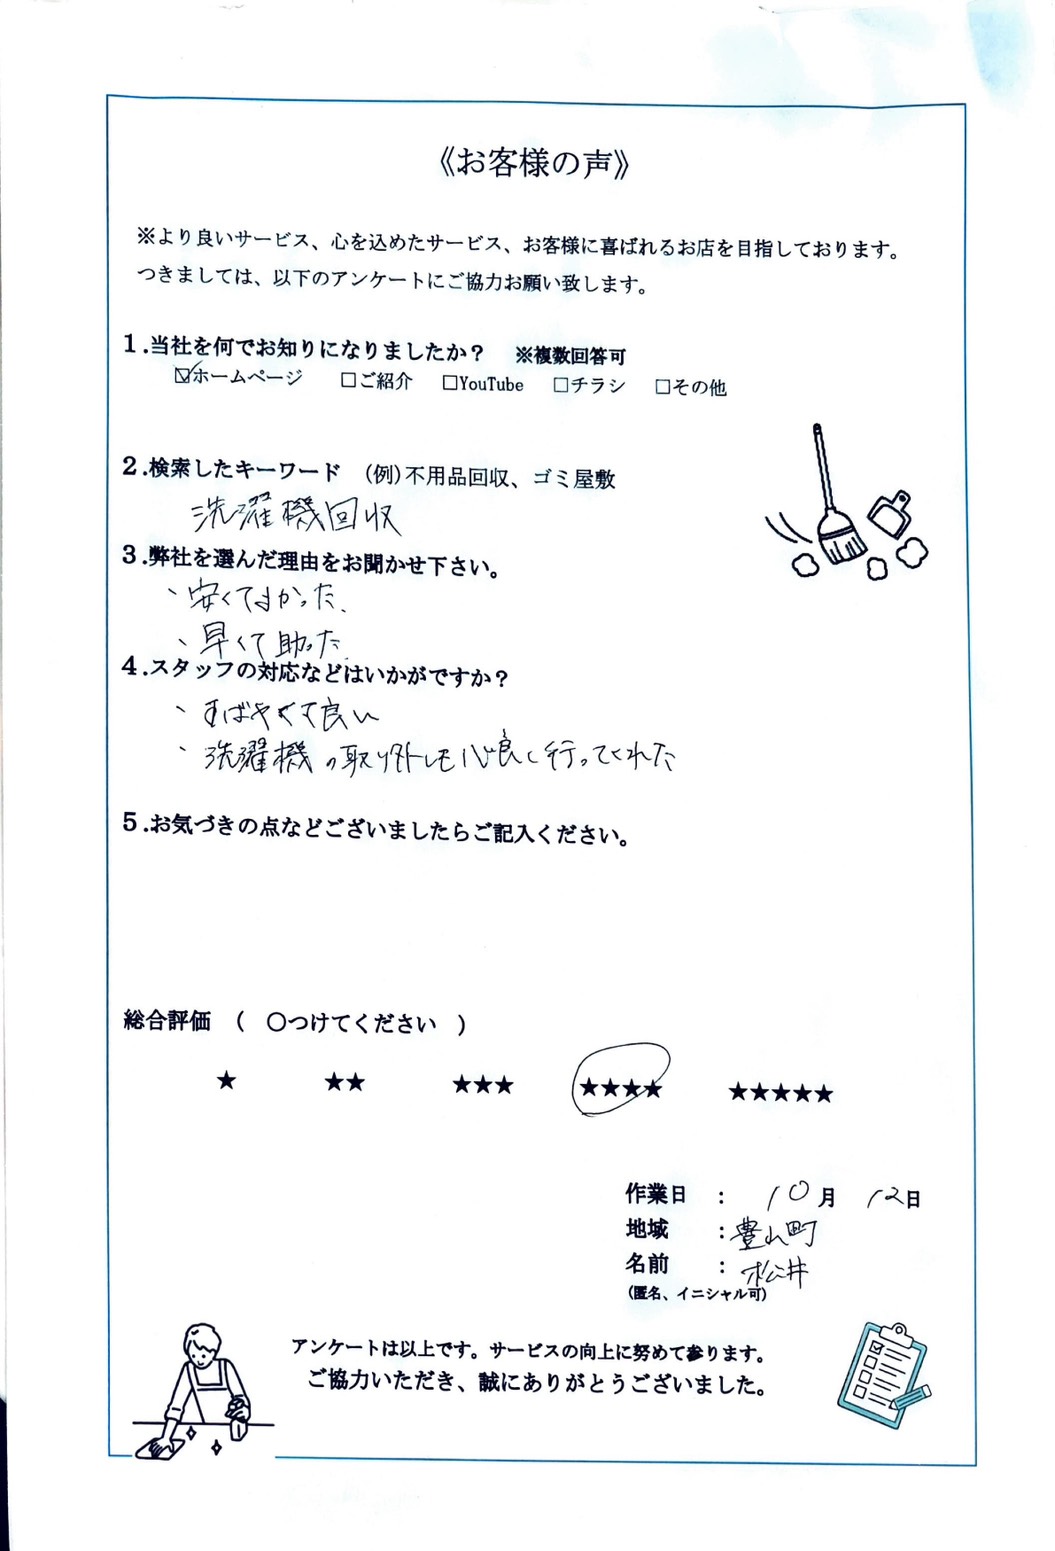 《お客様の声》
※より良いサービス、心を込めたサービス、お客様に喜ばれるお店を目指しております。
つきましては、以下のアンケートにご協力お願い致します。
1.当社を何でお知りになりましたか？　※複数回答可
☑ホームページ　□ご紹介　□YouTube　□チラシ　□その他
2.検索したキーワード　(例)不用品回収、ゴミ屋敷
洗濯機回収
3.弊社を選んだ理由をお聞かせ下さい。
、安くてよかった.
、早くて助った.
4.スタッフの対応などはいかがですか？
、すばやくて良い
、洗濯機の取り外しも心良く行ってくれた
5.お気づきの点などございましたらご記入ください。
総合評価　(　〇つけてください　)
★　★★　★★★　★★★★　★★★★★
作業日　:　10月　12日
地域　:豊山町
名前　:　松井
(匿名、イニシャル可)
アンケートは以上です。サービスの向上に努めて参ります。
ご協力いただき、誠にありがとうございました。